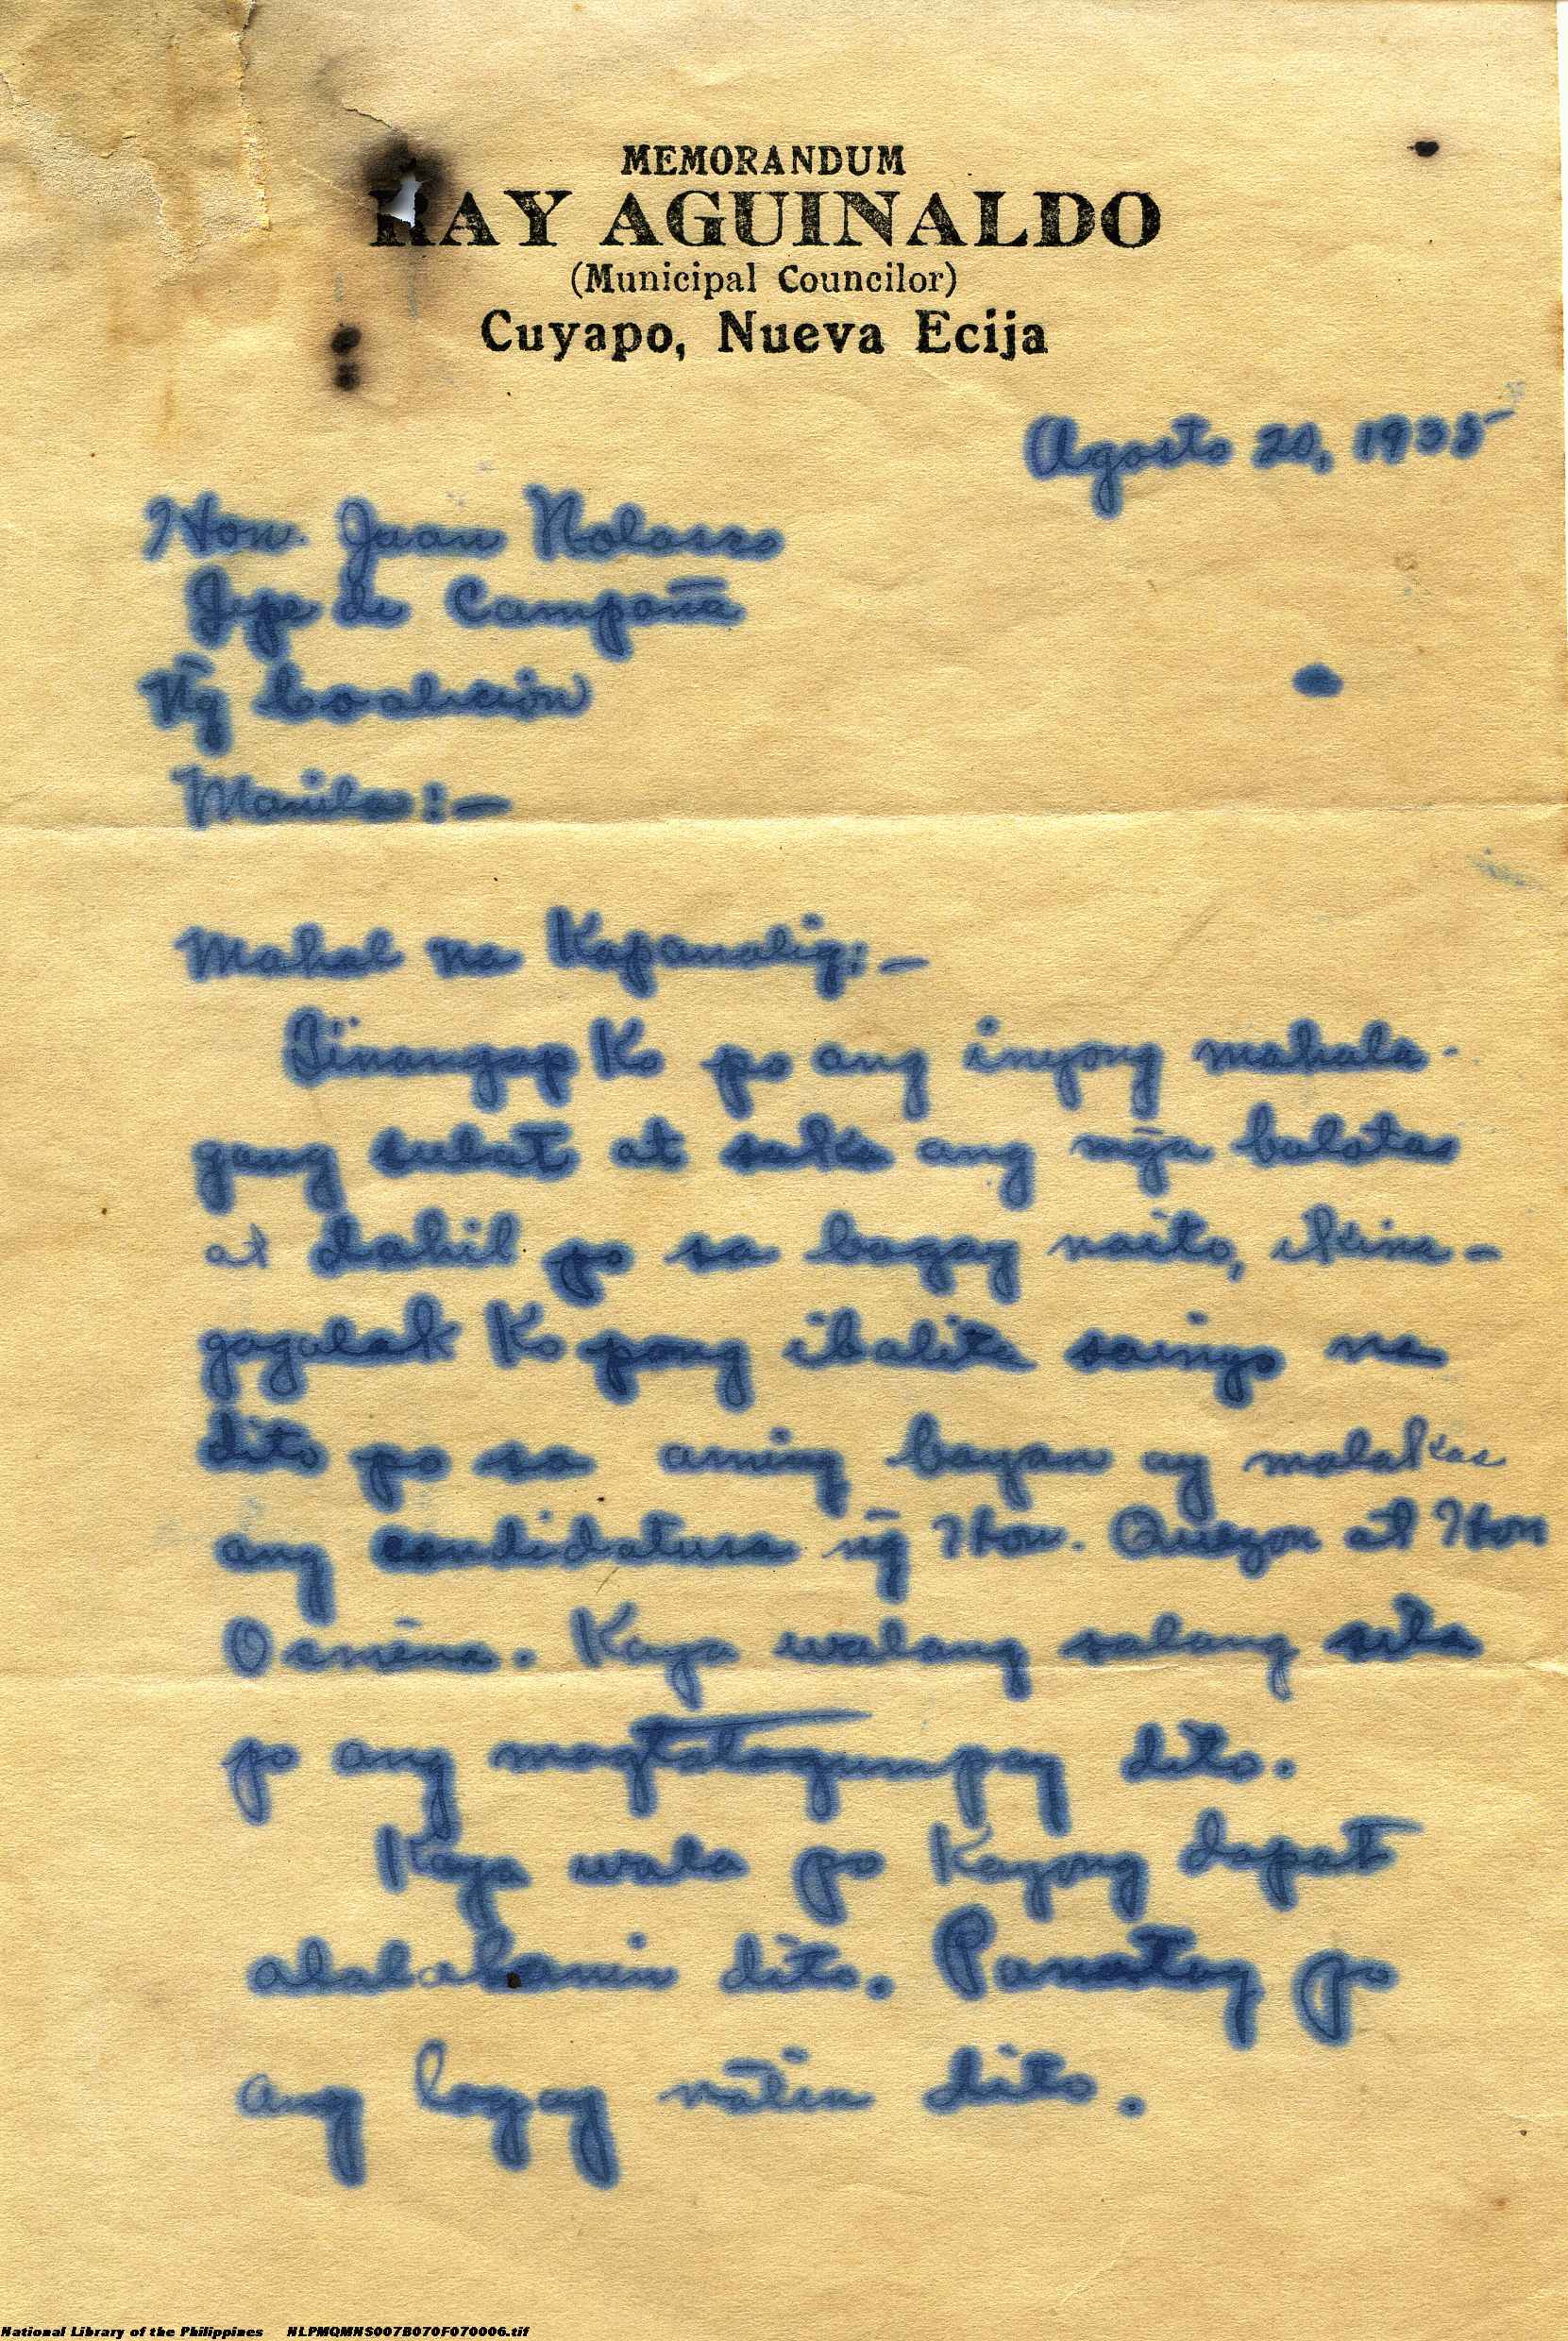 MEMORANDUM
RAY AGUINALDO
(Municipal Councilor)
Cuyapo, Nueva Ecija
Agosto 20, 1935
Hon. Juan Nolasco
Jepe de Campaña
Ñg Coalicion
Manila:—
Mahal na Kapanalig:—
Tinangap Ko po ang inyong mahala-
gang sulat at saka ang mg̃a balotas
at dahil po sa bagay naito, ikina-
gagalak Ko pong ibalita sainyo na
dito po sa aming bayan ay malakas
ang candidatura ñg Hon. Quezon at Hon
Osmeña. Kaya walang salang sila
po ang magtatagumpay dito.
Kaya wala po Kayong dapat
alalahanin dito. Panatag po
ang lagay natin dito.
National Library of the Philippines NLPMQMNS007B070F070006.tif